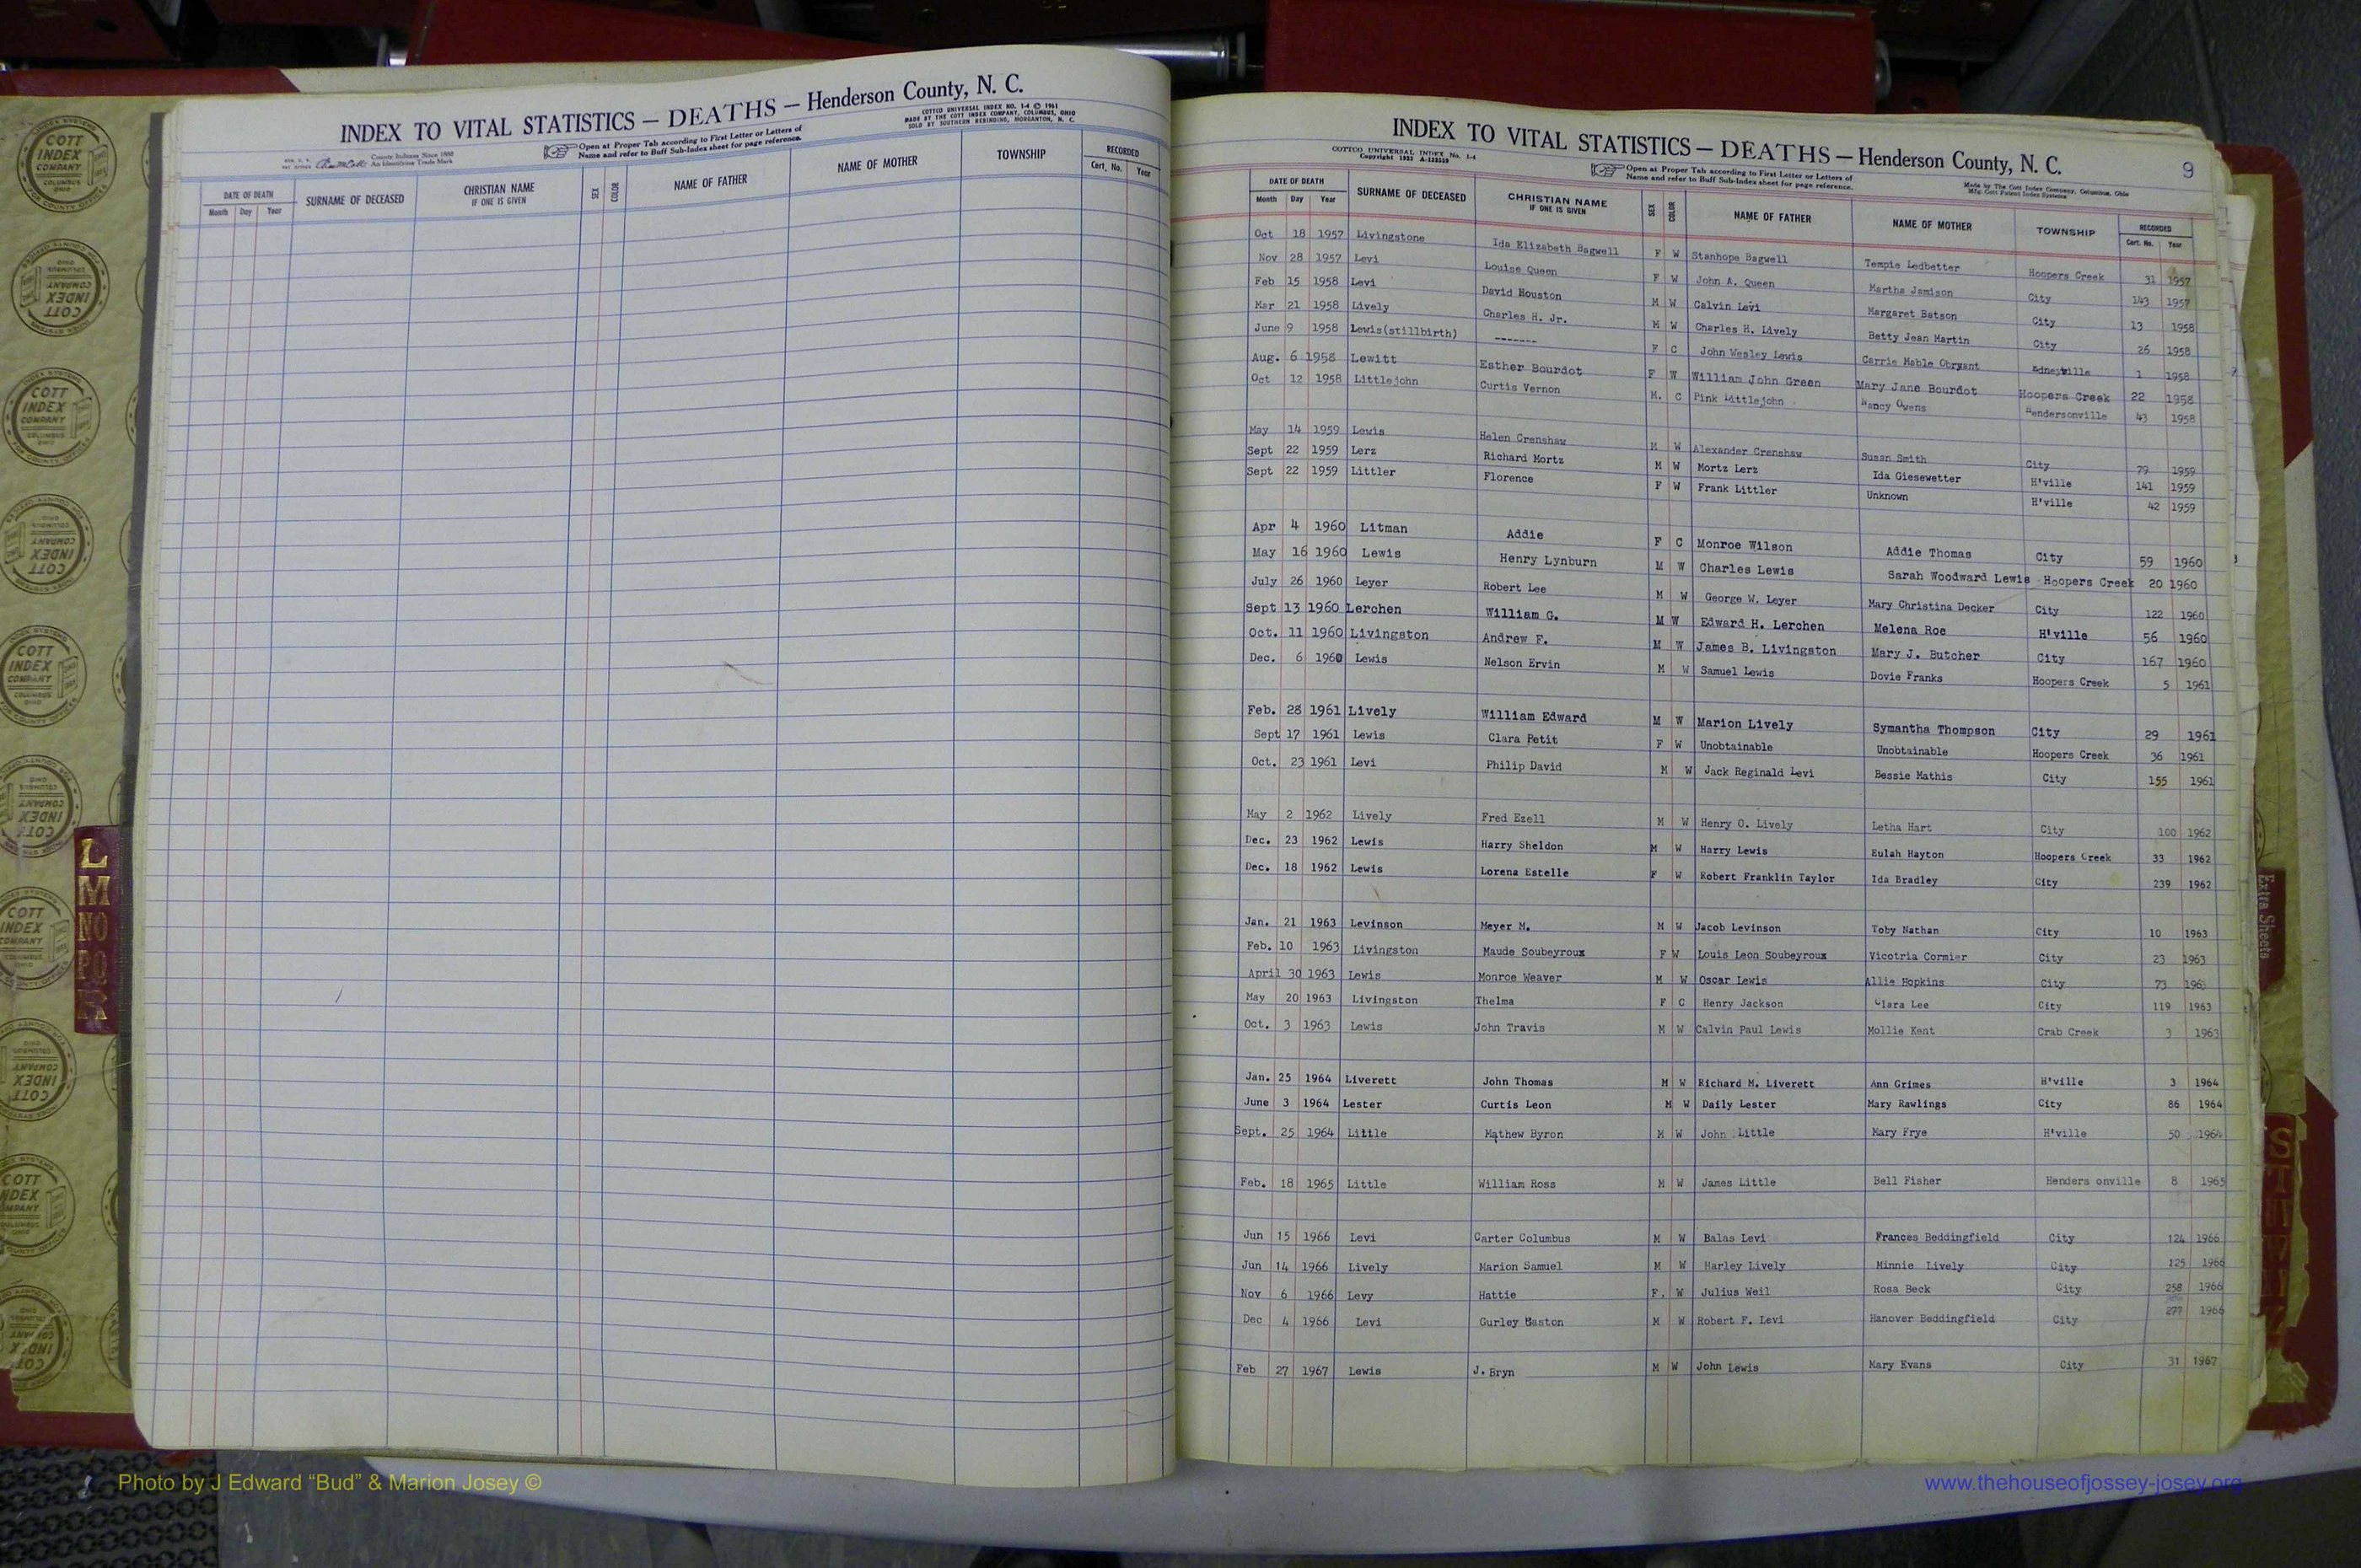 INDEX TO VITAL STATISTICS — DEATHS — Henderson County, N. C.
COTTCO UNIVERSAL INDEX NO. 1-4 © 1961
MADE BY THE COTT INDEX COMPANY, COLUMBUS, OHIO
SOLD BY SOUTHERN REBINDING, MORGANTON, N. C.
County Indexes Since 1888
An Identifying Trade Mark
Open at Proper Tab according to First Letter or Letters of
Name and refer to Buff Sub-Index sheet for page reference.
DATE OF DEATH SURNAME OF DECEASED CHRISTIAN NAME IF ONE IS GIVEN SEX COLOR NAME OF FATHER NAME OF MOTHER TOWNSHIP RECORDED
Month Day Year Cert. No. Year
INDEX TO VITAL STATISTICS — DEATHS — Henderson County, N. C. 9
COTTCO UNIVERSAL INDEX No. 1-4
Copyright 1933 A-123539
Open at Proper Tab according to First Letter or Letters of
Name and refer to Buff Sub-Index sheet for page reference.
Made by The Cott Index Company, Columbus, Ohio
Mfg. Cott Patent Index Systems
DATE OF DEATH SURNAME OF DECEASED CHRISTIAN NAME IF ONE IS GIVEN SEX COLOR NAME OF FATHER NAME OF MOTHER TOWNSHIP RECORDED
Month Day Year Cert. No. Year
Oct 18 1957 Livingstone Ida Elizabeth Bagwell F W Stanhope Bagwell Tempie Ledbetter Hoopers Creek 31 1957
Nov 28 1957 Levi Louise Queen F W John A. Queen Martha Jamison City 143 1957
Feb 15 1958 Levi David Houston M W Calvin Levi Margaret Batson City 13 1958
Mar 21 1958 Lively Charles H. Jr. M W Charles H. Lively Betty Jean Martin City 26 1958
June 9 1958 Lewis(stillbirth) ------- F C John Wesley Lewis Carrie Mable Obryant Edneyville 1 1958
Aug. 6 1958 Lewitt Esther Bourdot F W William John Green Mary Jane Bourdot Hoopers Creek 22 1958
Oct 12 1958 Littlejohn Curtis Vernon M. C Pink Littlejohn Nancy Owens Hendersonville 43 1958
May 14 1959 Lewis Helen Crenshaw M W Alexander Crenshaw Susan Smith City 79 1959
Sept 22 1959 Lerz Richard Mortz M W Mortz Lerz Ida Giesewetter H'ville 141 1959
Sept 22 1959 Littler Florence F W Frank Littler Unknown H'ville 42 1959
Apr 4 1960 Litman Addie F C Monroe Wilson Addie Thomas City 59 1960
May 16 1960 Lewis Henry Lynburn M W Charles Lewis Sarah Woodward Lewis Hoopers Creek 20 1960
July 26 1960 Leyer Robert Lee M W George W. Leyer Mary Christina Decker City 122 1960
Sept 13 1960 Lerchen William G. M W Edward H. Lerchen Melena Roe H'ville 56 1960
Oct. 11 1960 Livingston Andrew F. M W James B. Livingston Mary J. Butcher City 167 1960
Dec. 6 1960 Lewis Nelson Ervin M W Samuel Lewis Dovie Franks Hoopers Creek 5 1961
Feb. 28 1961 Lively William Edward M W Marion Lively Symantha Thompson City 29 1961
Sept 17 1961 Lewis Clara Petit F W Unobtainable Unobtainable Hoopers Creek 36 1961
Oct. 23 1961 Levi Philip David M W Jack Reginald Levi Bessie Mathis City 155 1961
May 2 1962 Lively Fred Ezell M W Henry O. Lively Letha Hart City 100 1962
Dec. 23 1962 Lewis Harry Sheldon M W Harry Lewis Eulah Hayton Hoopers Creek 33 1962
Dec. 18 1962 Lewis Lorena Estelle F W Robert Franklin Taylor Ida Bradley City 239 1962
Jan. 21 1963 Levinson Meyer M. M W Jacob Levinson Toby Nathan City 10 1963
Feb. 10 1963 Livingston Maude Soubeyroux F W Louis Leon Soubeyroux Vicotria Cormier City 23 1963
April 30 1963 Lewis Monroe Weaver M W Oscar Lewis Allie Hopkins City 73 1963
May 20 1963 Livingston Thelma F C Henry Jackson Clara Lee City 119 1963
Oct. 3 1963 Lewis John Travis M W Calvin Paul Lewis Mollie Kent Crab Creek 3 1963
Jan. 25 1964 Liverett John Thomas M W Richard M. Liverett Ann Grimes H'ville 3 1964
June 3 1964 Lester Curtis Leon M W Daily Lester Mary Rawlings City 86 1964
Sept. 25 1964 Little Mathew Byron M W John Little Mary Frye H'ville 50 1964
Feb. 18 1965 Little William Ross M W James Little Bell Fisher Henders onville 8 1965
Jun 15 1966 Levi Carter Columbus M W Balas Levi Frances Beddingfield City 124 1966
Jun 14 1966 Lively Marion Samuel M W Harley Lively Minnie Lively City 125 1966
Nov 6 1966 Levy Hattie F. W Julius Weil Rosa Beck City 258 1966
Dec 4 1966 Levi Gurley Gaston M W Robert F. Levi Hanover Beddingfield City 277 1966
Feb 27 1967 Lewis J. Bryn M W John Lewis Mary Evans City 31 1967
COTT INDEX COMPANY COLUMBUS OHIO
L
M
NO
PQ
R
Extra Sheets
Photo by J Edward “Bud” & Marion Josey ©
www.thehouseofjossey-josey.org